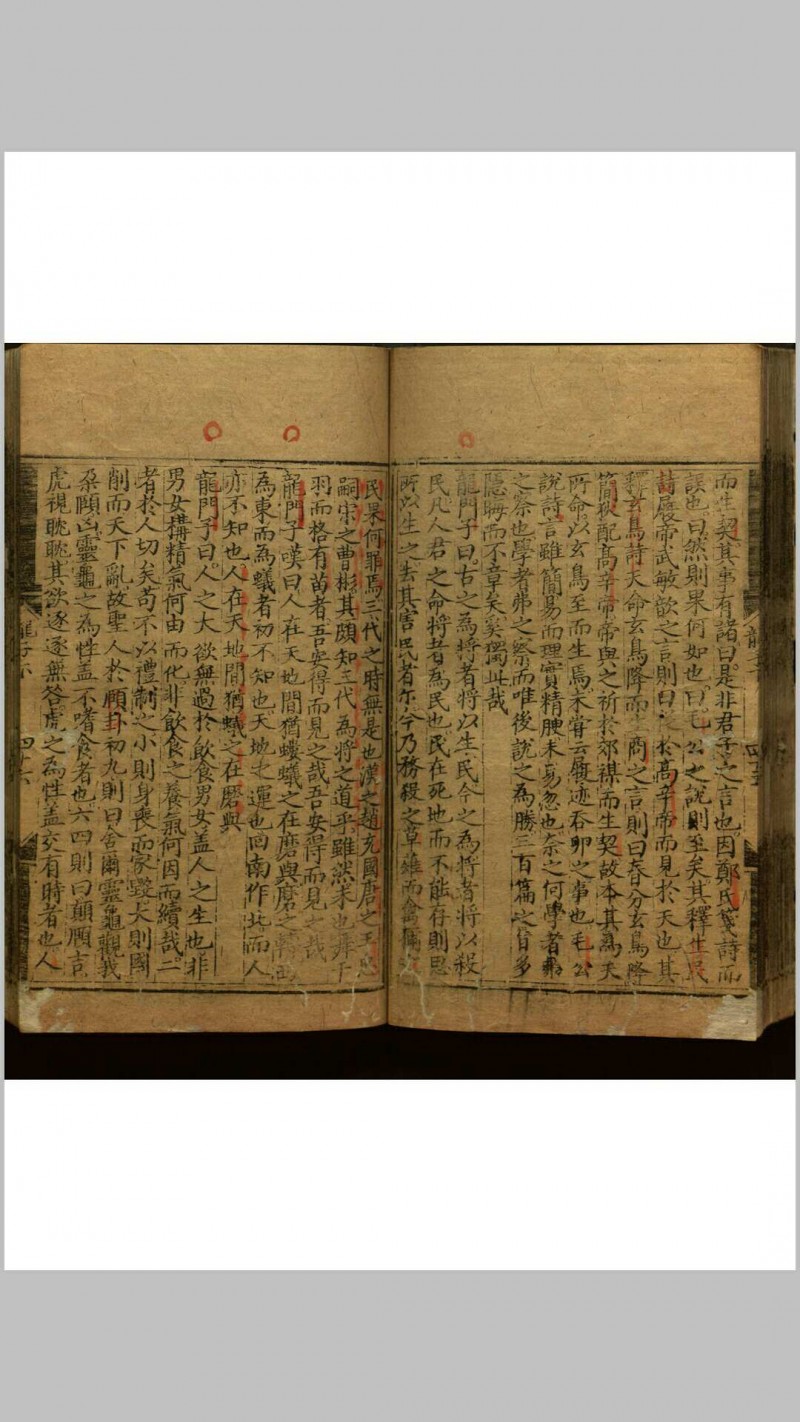 而生契其事有諸曰是非君子之言也因鄭氏箋詩而
誤也曰然則果何如也曰毛公之說則至矣其釋生民
詩履帝武敏歆之言則曰從於高辛帝而見於天也其
釋玄鳥詩天命玄鳥降而生商之言則曰春分玄鳥降
簡狄配高辛帝帝與之祈於郊禖而生契故本其為天
所命以玄鳥至而生焉未甞云履迹吞卵之事也毛公
說詩言雖簡易而理實精腴未易忽也奈之何學者弗
之察也學者弗之察而唯後說之為勝三百篇之旨多
隱晦而不章矣奚獨此哉
龍門子曰古之為將者將以生民今之為將者將以殺
民凡人君之命將者為民也民在死地而不能存則思
所以生之去其害民者尔今乃務殺之草雉而禽獮
民果何罪焉三代之時無是也漢之趙充國唐之王忠
嗣宋之曹彬其頗知三代為將之道乎雖然未也舞干
羽而格有苗者吾安得而見之哉吾安得而見之哉
龍門子嘆曰人在天地間猶螻蟻之在磨與磨之
為東而為蟻者初不知也天地之運也回南作北而人
亦不知也人在天地間猶蟻之在磨與
龍門子曰人之大欲無過於飲食男女盖人之生也非
男女構精氣何由而化非飲食之養氣何因而續哉二
者於人切矣苟不以禮制之小則身喪而家毀大則國
削而天下亂故聖人於頤卦初九則曰舍爾靈龜觀我
朶頤凶靈龜之為性盖不嗜食者也六四則曰顛頤吉
虎視眈眈其欲逐逐無咎虎之為性盖交有時者也人
龍子下
四十六